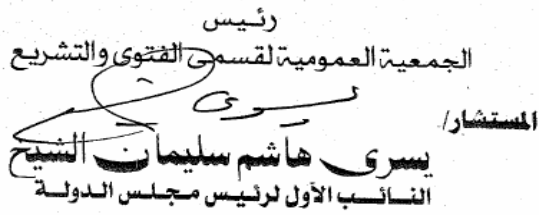 رئيس
الجمعية العمومية لقسمى الفتوى والتشريع
المستشار/
يسرى هاشم سليمان الشيخ
النائب الأول لرئيس مجلس الدولة